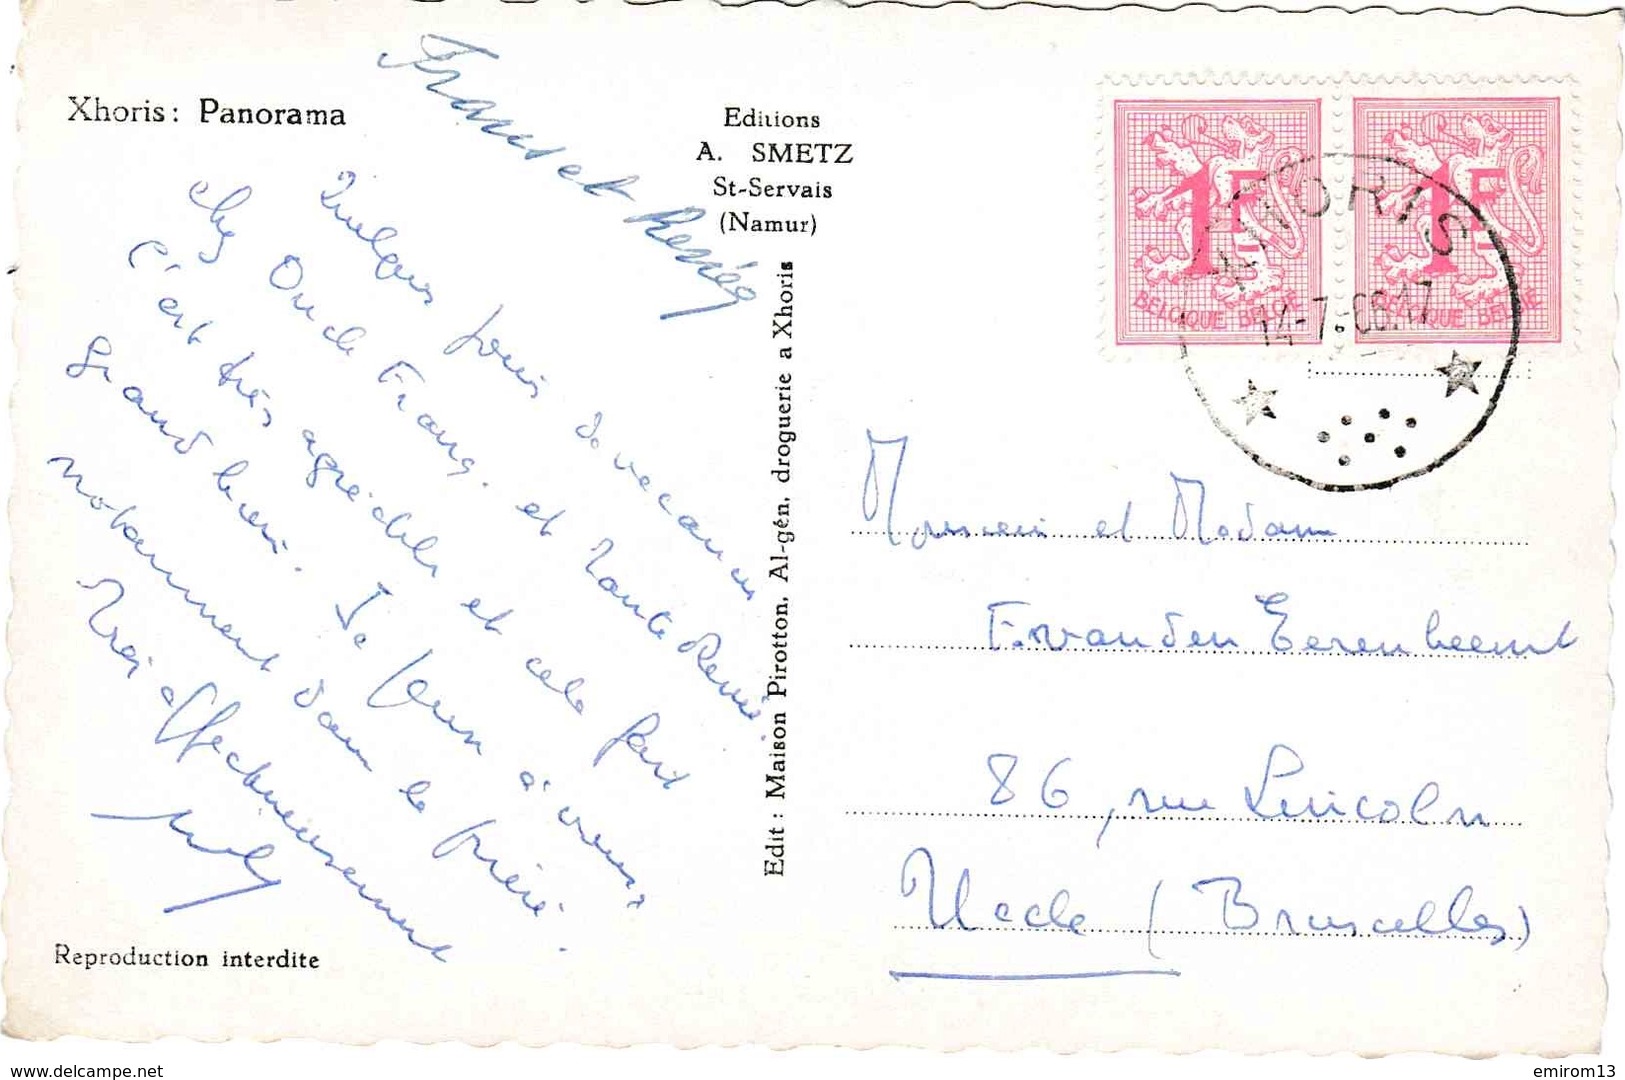 Xhoris: Panorama
Editions
A. SMETZ
St-Servais
(Namur)
Edit : Maison Pirotton, Al-gén. droguerie a Xhoris
Reproduction interdite
Quelques jours de vacances
chez Oncle Franç. et Tante Renée.
C'est très agréable et cela fait
grand bien. Je pense à vous
notamment dans la prière.
Très affectueusement
Frans et Renée
1F
BELGIQUE BELGIE
1F
BELGIQUE BELGIE
XHORIS
14-7
Monsieur et Madame
F. van den Eerenbeemt
86, rue Lincoln
Uccle (Bruxelles)
www.delcampe.net
emirom13